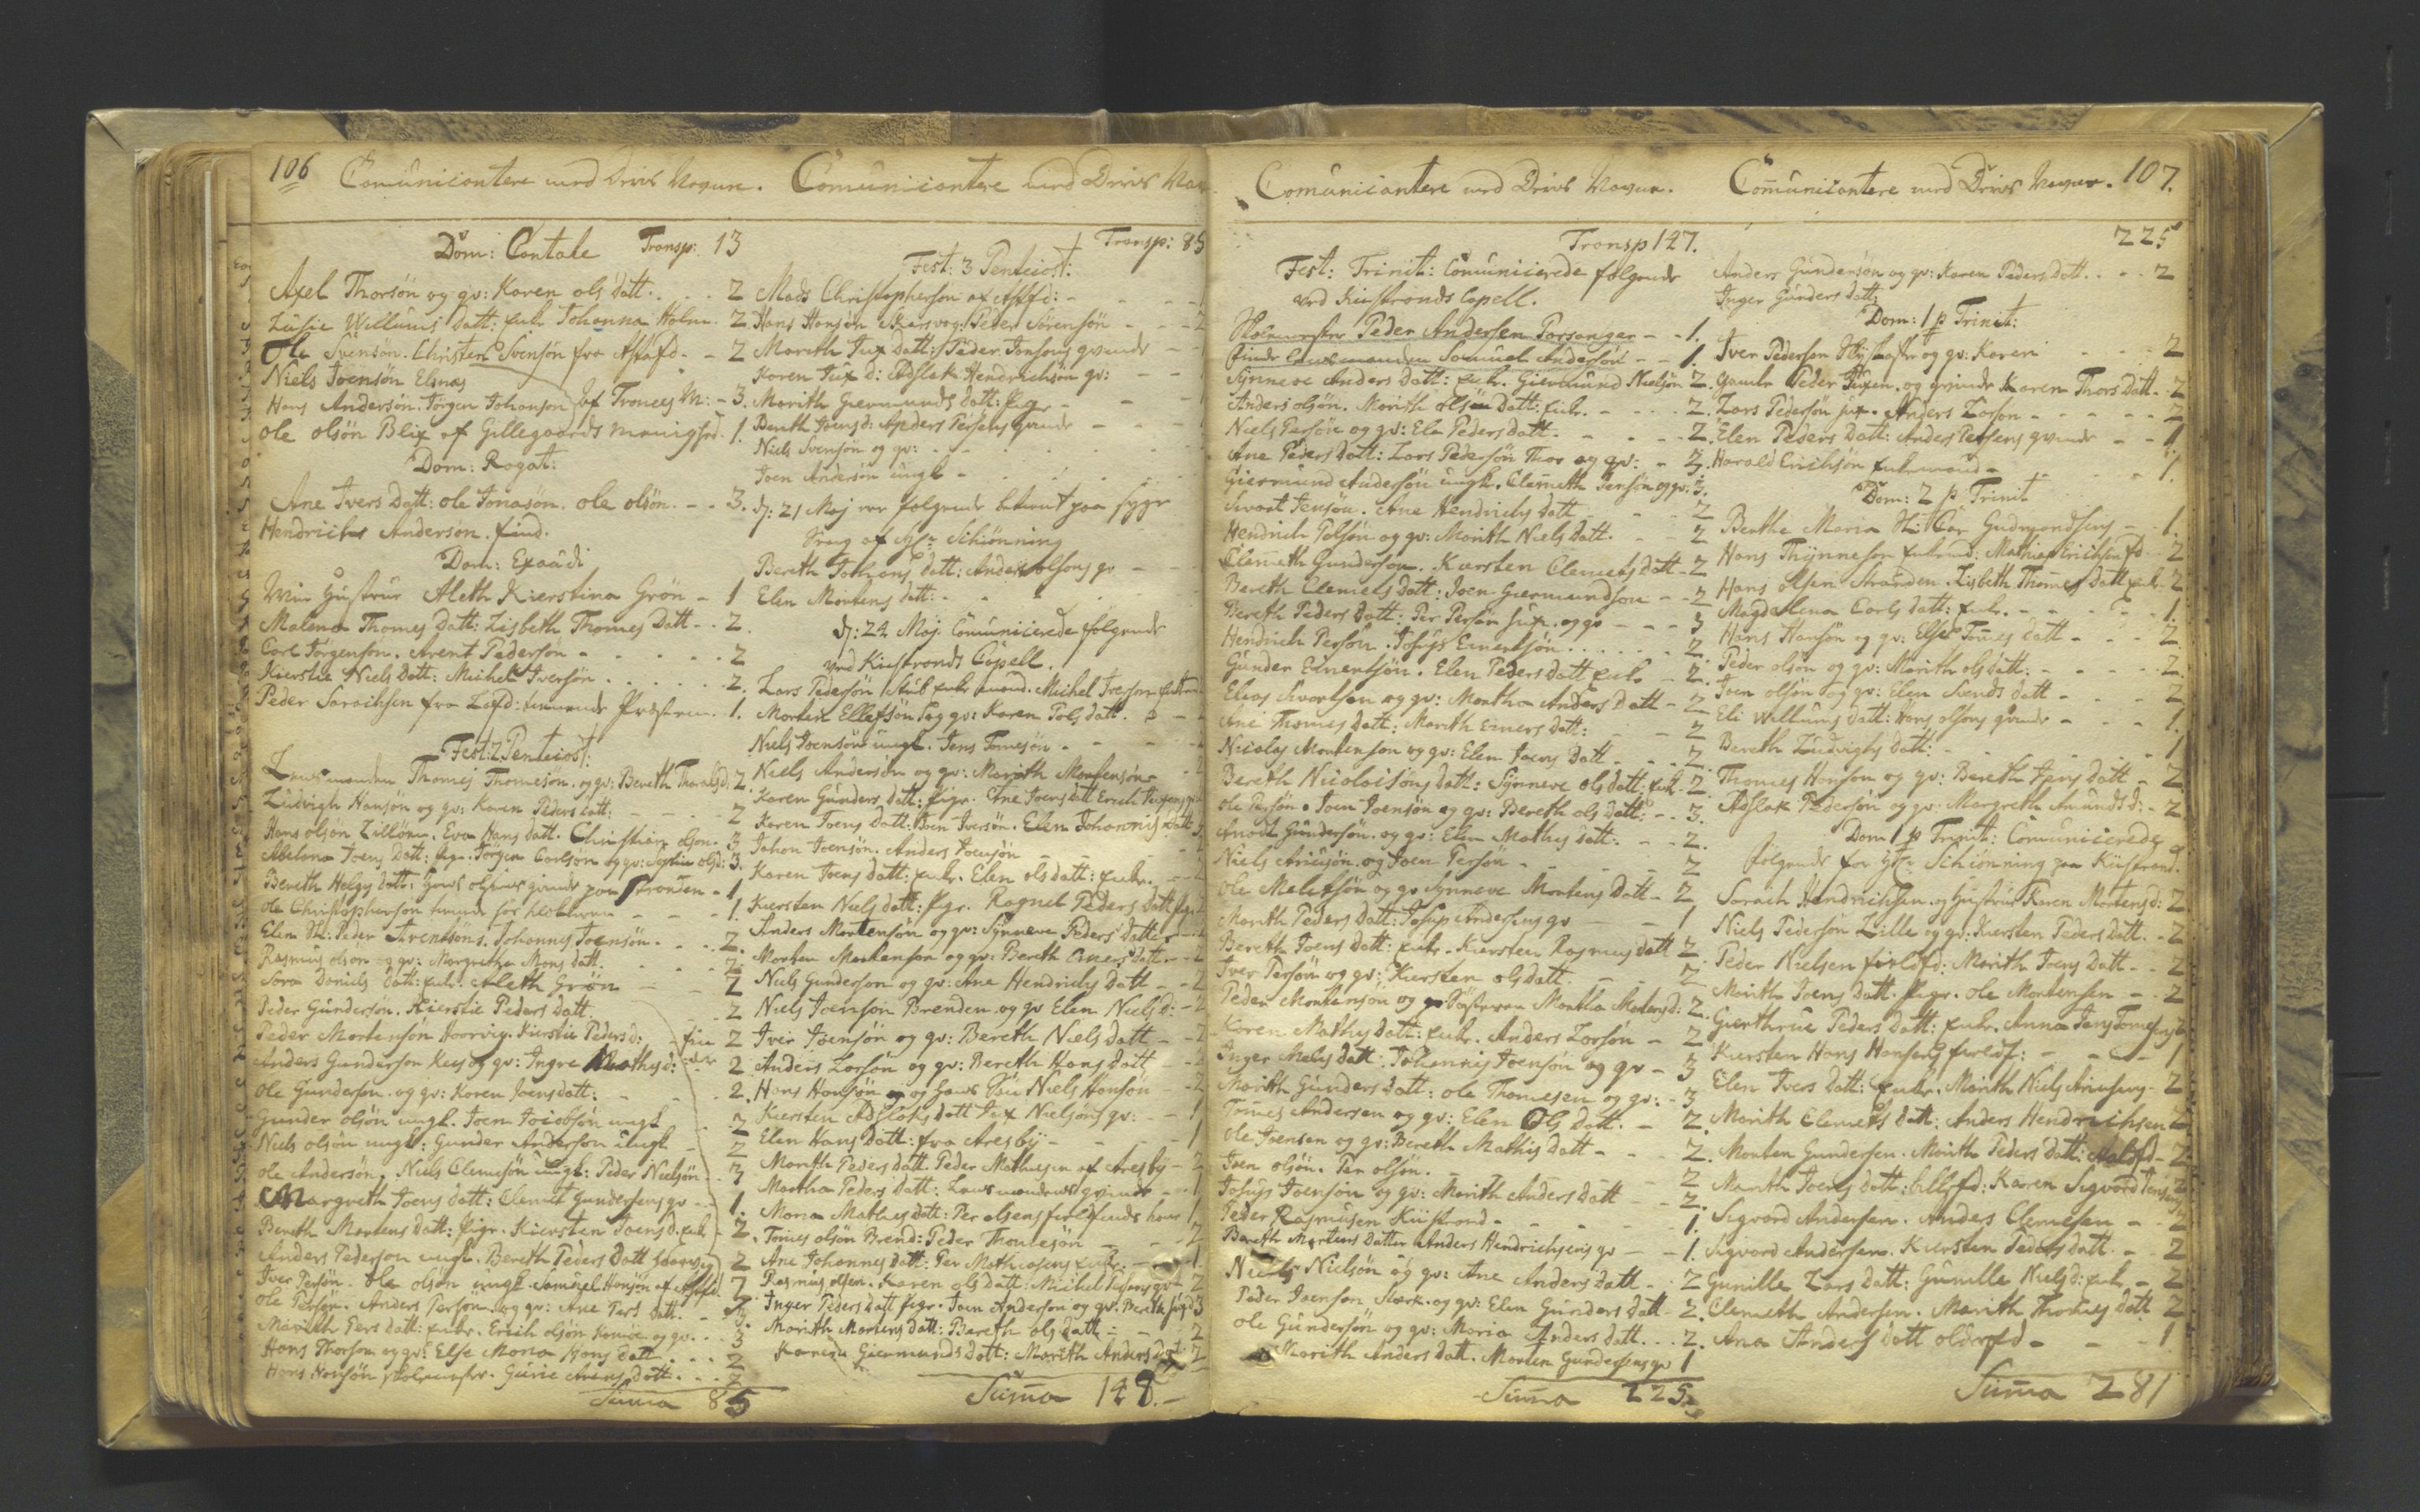 106 Comunicantere med Deres Navne. Comunicantere med Deres Nav
Dom: Cantate Transp: 13
Axel Thorsön og qv: Karen ols datt. . . 2
Lusie Willums datt: enke Johanna Holm. 2
Ole Svensön. Christen Svensön fra Astafd. - 2
Niels Joensön Elvnæs
Hans Andersön. Jörgen Johanson af Tronæs M: - 3.
Ole olsön Blix af Gillegaards menighed. 1.
Dom: Rogat:
Ane Ivers datt: ole Jonasön. ole olsön. - . 3.
Hendrich Anderson. find.
Dom: Exaudi
Min Hustrue Aleth Kierstina Grön - 1
Malena Thomes datt: Lisbeth Thomes Datt - . 2.
Carl Jörgenson. Arent Pederson - . . . . 2
Kierstie Niels Datt: Michel Iversön . . . . . 2.
Peder Sarachsen fra Laxfd: 1.
Fest: 2 Pentecost:
Lensmanden Thomes Thomesön. og qv: Bereth 2.
Ludvigh Hansön og qv: Karen Peders datt: 2
Hans olsön Lillöen. Eva Hans datt. Christian olson. 3
Abelona Joens datt: pige. Jörgen Carlson og qv: Sophie olsd: 3.
Bereth Helgs datt: Hans olsens qvinde paa Stranden - 1.
ole Christopherson 1.
Elen Sl: Peder Arentsöns. Johannes Joensön. . . 2.
Rasmus olson og qv: Margretha Mons datt. 2.
Sara Daniels datt: enke. Aleth Grön - - 2
Peder Gundersön. Kierstie Peders datt. 2
Peder Mortensön Kierstie Pedersd: 2
Anders Gunderson og qv: Ingre Mathisd: 2
ole Gunderson. og qv: Karen Joens datt: 2.
Gunder olsön ungk. Joen Jocobsön ungk 2
Niels olsön ungk: Gunder Anderson ungk - 2
ole Andersön, Niels Clemesön ungk: Peder Nielsön. 3
Margreth Joens datt: Clemet Gundersens qv - 1.
Bereth Mortens datt: pige. Kiersten Joens d. enke 2.
Anders Pederson ungk. Bereth Peders Datt 2
Iver Persön. Ole olsön ungk. Samuel Hansön af
ole Persön. Anders Persön og qv: Ane Pers datt. 3.
Marith Pers datt: enke. Erich olsön og qv. . . 3
Hans Thorson og qv: Else Maria Hans datt . . . 2
Hans Hansön skolemester. Gurie Arens datt. . . 2
Suma 85
Transp: 85
Fest: 3 Pentecost:
Mads Christopherson af Altfd: -
Hans Hansön Skarsvog: Peder Sörensön - - 2
Marith Jux datt: Peder Jonsons qvinde
Karen Jux d: Adslak Hendrichsön qv: - -
Marith Giermunds datt: pige -
Berith Joens d: Anders Persens qvinde - -
Niels Svensön og qv: . .
Joen Anderson ungk - . . .
D: 21 Maj var folgende betient paa syge
Seng af Hr: Schiönning
Bereth Johans datt: Anders olsons qv -
Elen Mortens datt: -
D: 24 Maj. Comunicerede folgende
ved Kiestrands Capell.
Lars Pedersön enke mand. Michel Iverson
Morten Ellefsön og qv: Karen Pols datt.
Niels Joensön ungk. Jens Tomesön -
Niels Anderson og qv: Marith Mortensöns - 2
Karen Gunders datt: Pige. Ane Joens datt
Karen Joens datt: Joen Iversön. Elen Johannis datt
Johan Joensön. Anders Joensön
Karen Joens datt: enke. Elen ols datt: enke. -
Kiersten Niels datt: Pige. Ragnel Peders datt
Anders Mortensön og qv: Synneve Peders datter
Morten Mortenson og qv: Bereth Einers datt - - 2
Niels Gunderson og qv: Ane Hendrichs datt - - 2
Niels Joenson Brenden. og qv Elen Niels d: - 2
Iver Joensön og qv: Bereth Niels datt - - 2
Anders Larson og qv: Bereth Hans datt - 2
Hans Hansön og hans Sön Niels Hanson - 2
Kiersten Adslaks datt Jux Nielsons qv: - - 1
Elen Hans Datt: fra Aresby - - - - 1
Marith Peders datt. Peder Mathisen af Aresby - 2
Martha Peders datt: Lensmandens qvinde - - 1
Maria Mathis datt: Per olsens 1
Tomes olsön Brend: Peder Thomesön - - - 2
Ane Johannes datt: Per Mathiasens enke: - - 1
Rasmus olsen. Karen ols datt: Michel
Inger Peders datt Pige. Joen Anderson og qv: 3
Marith Mortens datt: Bereth ols datt - - 2
Karen Giermunds datt: Marith Anders datt 2
Suma 148.-
Comunicantere med Deres Navne. Comunicantere med Deres Navne. 107.
Transp 147.
Fest: Trinit: Comunicerede folgende
ved Kiestrands Capell.
Skolemester Peder Andersen Porsanger - - 1.
finde Lensmanden Samuel Andersön - - 1.
Synneve Anders datt: enke. Giermund Nielsön 2.
Anders olsön. Marith ols datt: enke. - . . . 2.
Niels Persön og qv: Ele Peders datt. . . . 2.
Ane Peders datt: Lars Pedersön Thor og qv: - 3.
Giermund Andersön ungk. Clemeth Jensön og qv. 3.
Sivert Jensön. Ane Hendrichs datt - - 2
Hendrich Polsön og qv: Marith Niels datt. - - 2
Clemeth Gunderson. Karsten Clemets datt - 2
Bereth Clemets datt: Joen Giermundson - - 2
Bereth Peders datt: Per Persön Jux. og qv - - 3
Hendrich Person. Josups Einertsön . . . . . 2.
Gunder Einertsön. Elen Peders datt enke - 2.
Elias Sivertsen og qv: Martha Anders datt - 2
Ane Thomes datt: Marith Einers datt: 2
Nicolas Mortenson og qv: Elen Joens datt - . 2
Bereth Nicolaisöns datt: Synneve ols datt: enk. 2.
ole Persön. Joen Joensön og qv: Bereth ols datt: - . 3.
Anders Gundersön. og qv: Elen Mathis datt: - - 2.
Niels og Joen Persön - . 2
ole Melchsön og qv Synneve Mortens datt - 2
Marith Peders datt: Josup Andersens qv - - 1
Bereth Joens datt: enke. Kiersten Rasmus datt 2.
Iver Persön og qv: Kiersten ols datt. 2
Peder Mortensön og Martha Mortens d: 2.
Karen Mathis datt: enke. Anders Larsön - 2
Inger Mels datt: Johannis Joensön og qv - 3
Marith Gunders datt: ole Thomesen og qv: - 3
Tomes Andersen og qv: Elen Ols datt. - 2.
Ole Joensen og qv: Bereth Mathis datt - - - 2.
Joen olsön. Per olsön. - 2
Josups Joensön og qv: Marith Anders datt - 2.
Peder Rasmusen Kiistrand - - - 1.
Bereth Mortens datter Anders Hendrichsens qv - - 1.
Niels Nielsön og qv: Ane Anders datt - . 2
Peder Joenson Stærk. og qv: Elen Gunders datt - 2.
ole Gundersön og qv: Maria Anders datt. . . 2.
Marith Anders datt. Morten Gundersens qv 1
Suma 225
225
Anders Gunderson og qv: Karen Peders datt. . . . 2
Inger Gunders datt;
Dom: 1 p Trinit:
Iver Pederson og qv: Karen - - - 2
Gamle Peder Juxen. og qvinde Karen Thors datt. - 2
Lars Pedersön jux. Anders Larson - - - - - 2
Elen Peders datt: Anders Persens qvinde - - 1
Harald Erichsön enkemand - 1.
Dom: 2 p Trinit
Berthe Maria Sl: Gudmondsens - - 1.
Hans Thynneson enkemd: Mathias Erichsen 2
Hans olsen Stranden. Lisbeth Thomes datt enk. 2.
Magdalena Carls datt: enk. - - - - - 1.
Hans Hansön og qv: Else Tomes datt - - - 2.
Peder olsön og qv: Marith ols datt: - - 2.
Joen olsön og qv: Elen Svends datt - - 2
Eli Willums datt: Hans olsons qvinde - - - 1.
Bereth Ludvighs datt: - - - 1
Thomes Hanson og qv: Bereth Jens datt - 2.
Adslak Pedersön og qv: Margreth Amunds d: - 2
Dom 1 p Trinit: Comunicerede
folgende for Hr: Schiönning paa Kiistrand.
Sarach Hendrichsen. og Hustrue Karen Mortens d: 2
Niels Pedersön Lille og qv: Kiersten Peders datt. - 2
Peder Nielsen Marith Joens datt - - 2
Marith Joens datt. Pige. ole Mortensen - - 2
Gierthrue Peders datt: enke. Anna Jens
Kiersten Hans Hansens - - 1
Elen Ivers datt: enke. Marith Niels 2
Marith Clemets datt: Anders Hendrichsen 2
Morten Gundersen. Marith Peders datt: 2
Marith Joens datt: Karen Sigvord
Sigvord Andersen. Anders Clemesen - - 2
Sigvord Andersen. Kiersten Peders datt - - 2
Gunille Lars datt: Gunille Niels d: enk - 2
Clemeth Andersen. Marith Thomes datt 2
Ana Anders datt - - 1
Suma 281